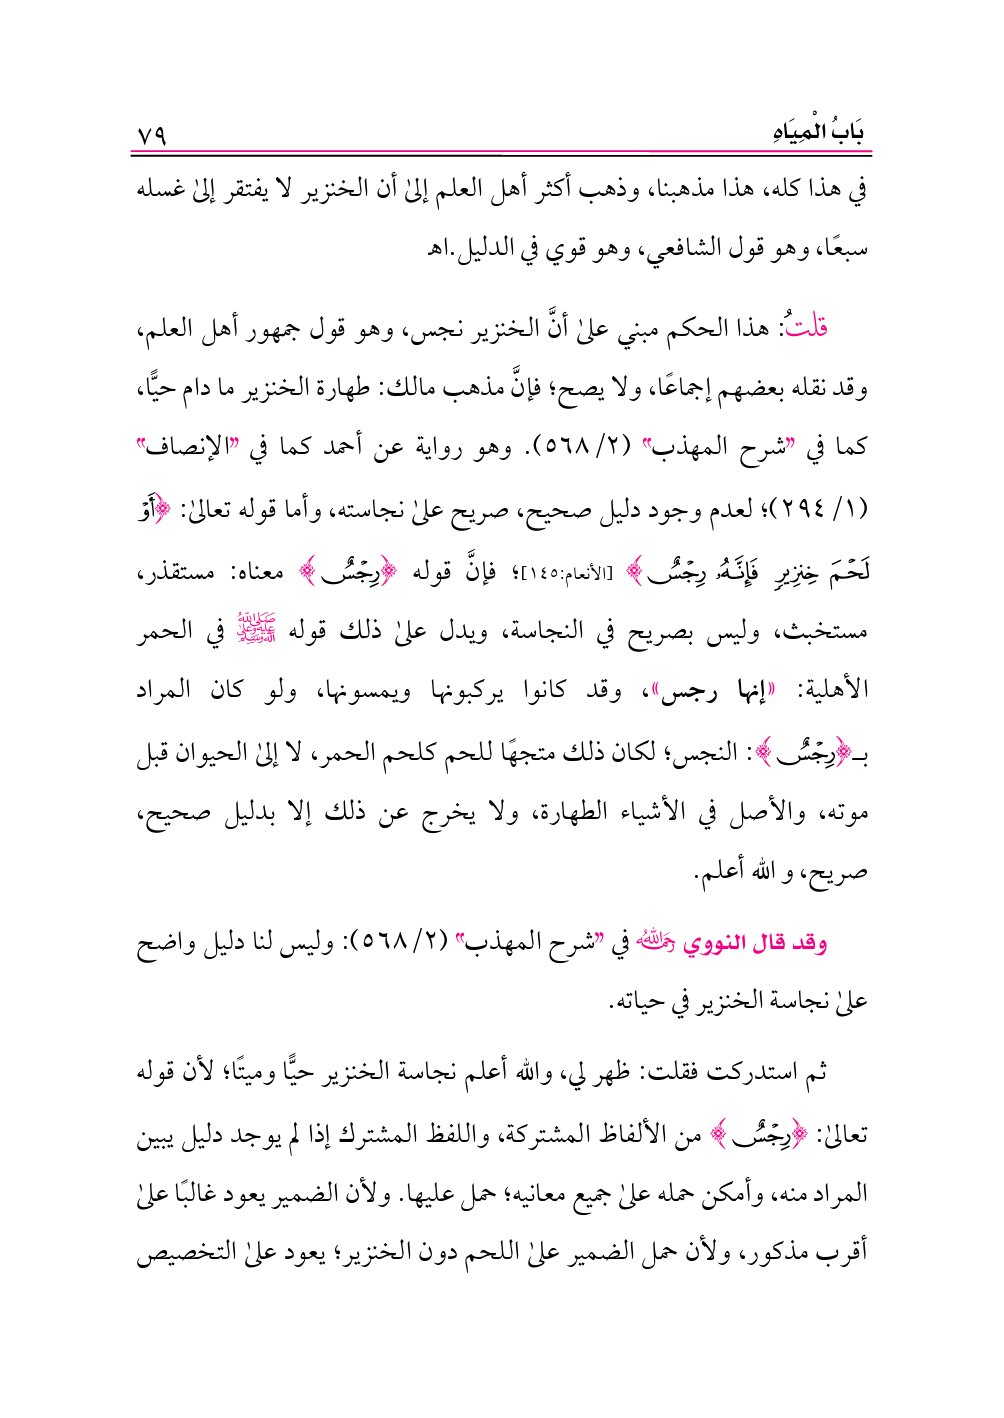 بَابُ الْمِيَاهِ
٧٩
في هذا كله، هذا مذهبنا، وذهب أكثر أهل العلم إلىٰ أن الخنزير لا يفتقر إلىٰ غسله
سبعًا، وهو قول الشافعي، وهو قوي في الدليل.اهـ
قلتُ: هذا الحكم مبني علىٰ أنَّ الخنزير نجس، وهو قول جمهور أهل العلم،
وقد نقله بعضهم إجماعًا، ولا يصح؛ فإنَّ مذهب مالك: طهارة الخنزير ما دام حيًّا،
كما في "شرح المهذب" (٢/ ٥٦٨). وهو رواية عن أحمد كما في "الإنصاف"
(١/ ٢٩٤)؛ لعدم وجود دليل صحيح، صريح علىٰ نجاسته، وأما قوله تعالىٰ: ﴿أَوۡ
لَحۡمَ خِنزِيرٖ فَإِنَّهُۥ رِجۡسٌ﴾ [الأنعام:١٤٥]؛ فإنَّ قوله ﴿رِجۡسٌ﴾ معناه: مستقذر،
مستخبث، وليس بصريح في النجاسة، ويدل علىٰ ذلك قوله ﷺ في الحمر
الأهلية: «إنها رجس»، وقد كانوا يركبونها ويمسونها، ولو كان المراد
بـ﴿رِجۡسٌ﴾: النجس؛ لكان ذلك متجهًا للحم كلحم الحمر، لا إلىٰ الحيوان قبل
موته، والأصل في الأشياء الطهارة، ولا يخرج عن ذلك إلا بدليل صحيح،
صريح، و الله أعلم.
وقد قال النووي رحمه الله في "شرح المهذب" (٢/ ٥٦٨): وليس لنا دليل واضح
علىٰ نجاسة الخنزير في حياته.
ثم استدركت فقلت: ظهر لي، والله أعلم نجاسة الخنزير حيًّا وميتًا؛ لأن قوله
تعالىٰ: ﴿رِجۡسٌ﴾ من الألفاظ المشتركة، واللفظ المشترك إذا لم يوجد دليل يبين
المراد منه، وأمكن حمله علىٰ جميع معانيه؛ حمل عليها. ولأن الضمير يعود غالبًا علىٰ
أقرب مذكور، ولأن حمل الضمير علىٰ اللحم دون الخنزير؛ يعود علىٰ التخصيص